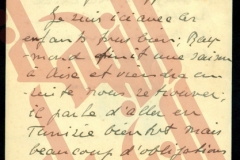 Je suis ici avec les
enfants tous bien; Ray-
mond finit une saison
à Aix et viendra en-
suite nous retrouver,
il parle d'aller en
Tunisie bientôt mais
beaucoup d'obligations